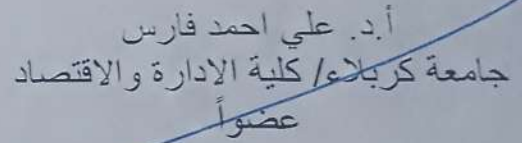 أ.د. علي احمد فارس
جامعة كربلاء/ كلية الادارة والاقتصاد
عضواً